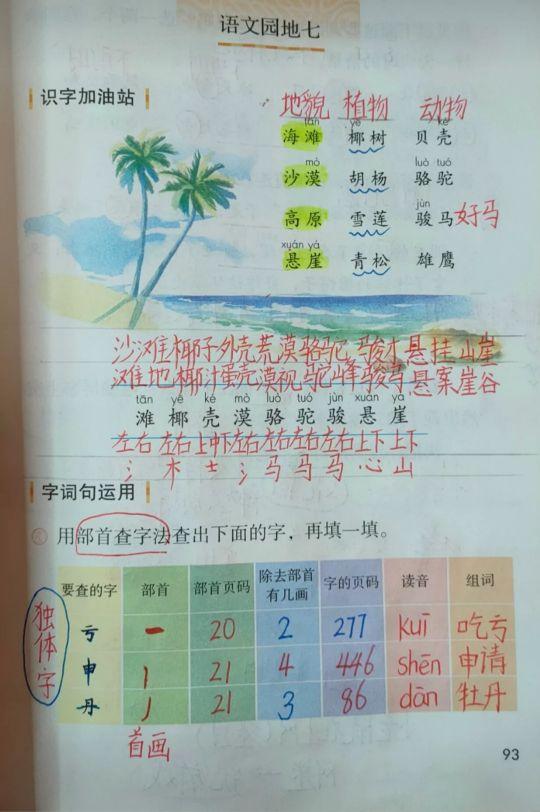 语文园地七
识字加油站
地貌 植物 动物
tān yē ké
海滩 椰树 贝壳
mò luò tuó
沙漠 胡杨 骆驼
jùn
高原 雪莲 骏马 好马
xuán yá
悬崖 青松 雄鹰
沙滩 椰子 外壳 荒漠 骆驼 骏木 悬挂 山崖
滩地 椰汁 蛋壳 漠视 驼峰 骏马 悬案 崖谷
tān yē ké mò luò tuó jùn xuán yá
滩 椰 壳 漠 骆 驼 骏 悬 崖
左右 左右 上中下 左右 左右 左右 左右 上下 上下
氵 木 士 氵 马 马 马 心 山
字词句运用
用部首查字法查出下面的字，再填一填。
要查的字 部首 部首页码 除去部首有几画 字的页码 读音 组词
独体字
亏 一 20 2 277 kuī 吃亏
申 丨 21 4 446 shēn 申请
丹 丿 21 3 86 dān 牡丹
首画
93